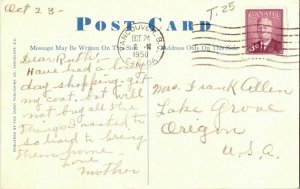 Oct 23-
T.25
POST CARD
Message May Be Written On This Side
Address Only On This Side
VANCOUVER, B.C.
OCT 24
1950
CANADA
CANADA
3
Dear Ruth:-
Have had a
day shopping. Got
my coat, but will
not buy all the
things I wanted to
so hard to bring
them home.
Love
Mother
Mrs. Frank Allen
Lake Grove
Oregon
U.S.A.